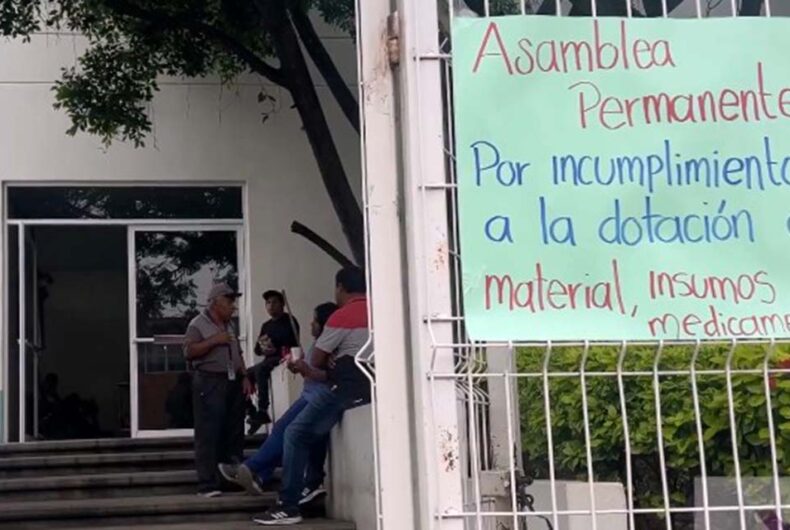 Asamblea
Permanente
Por incumplimiento
a la dotación
material, insumos
medicame